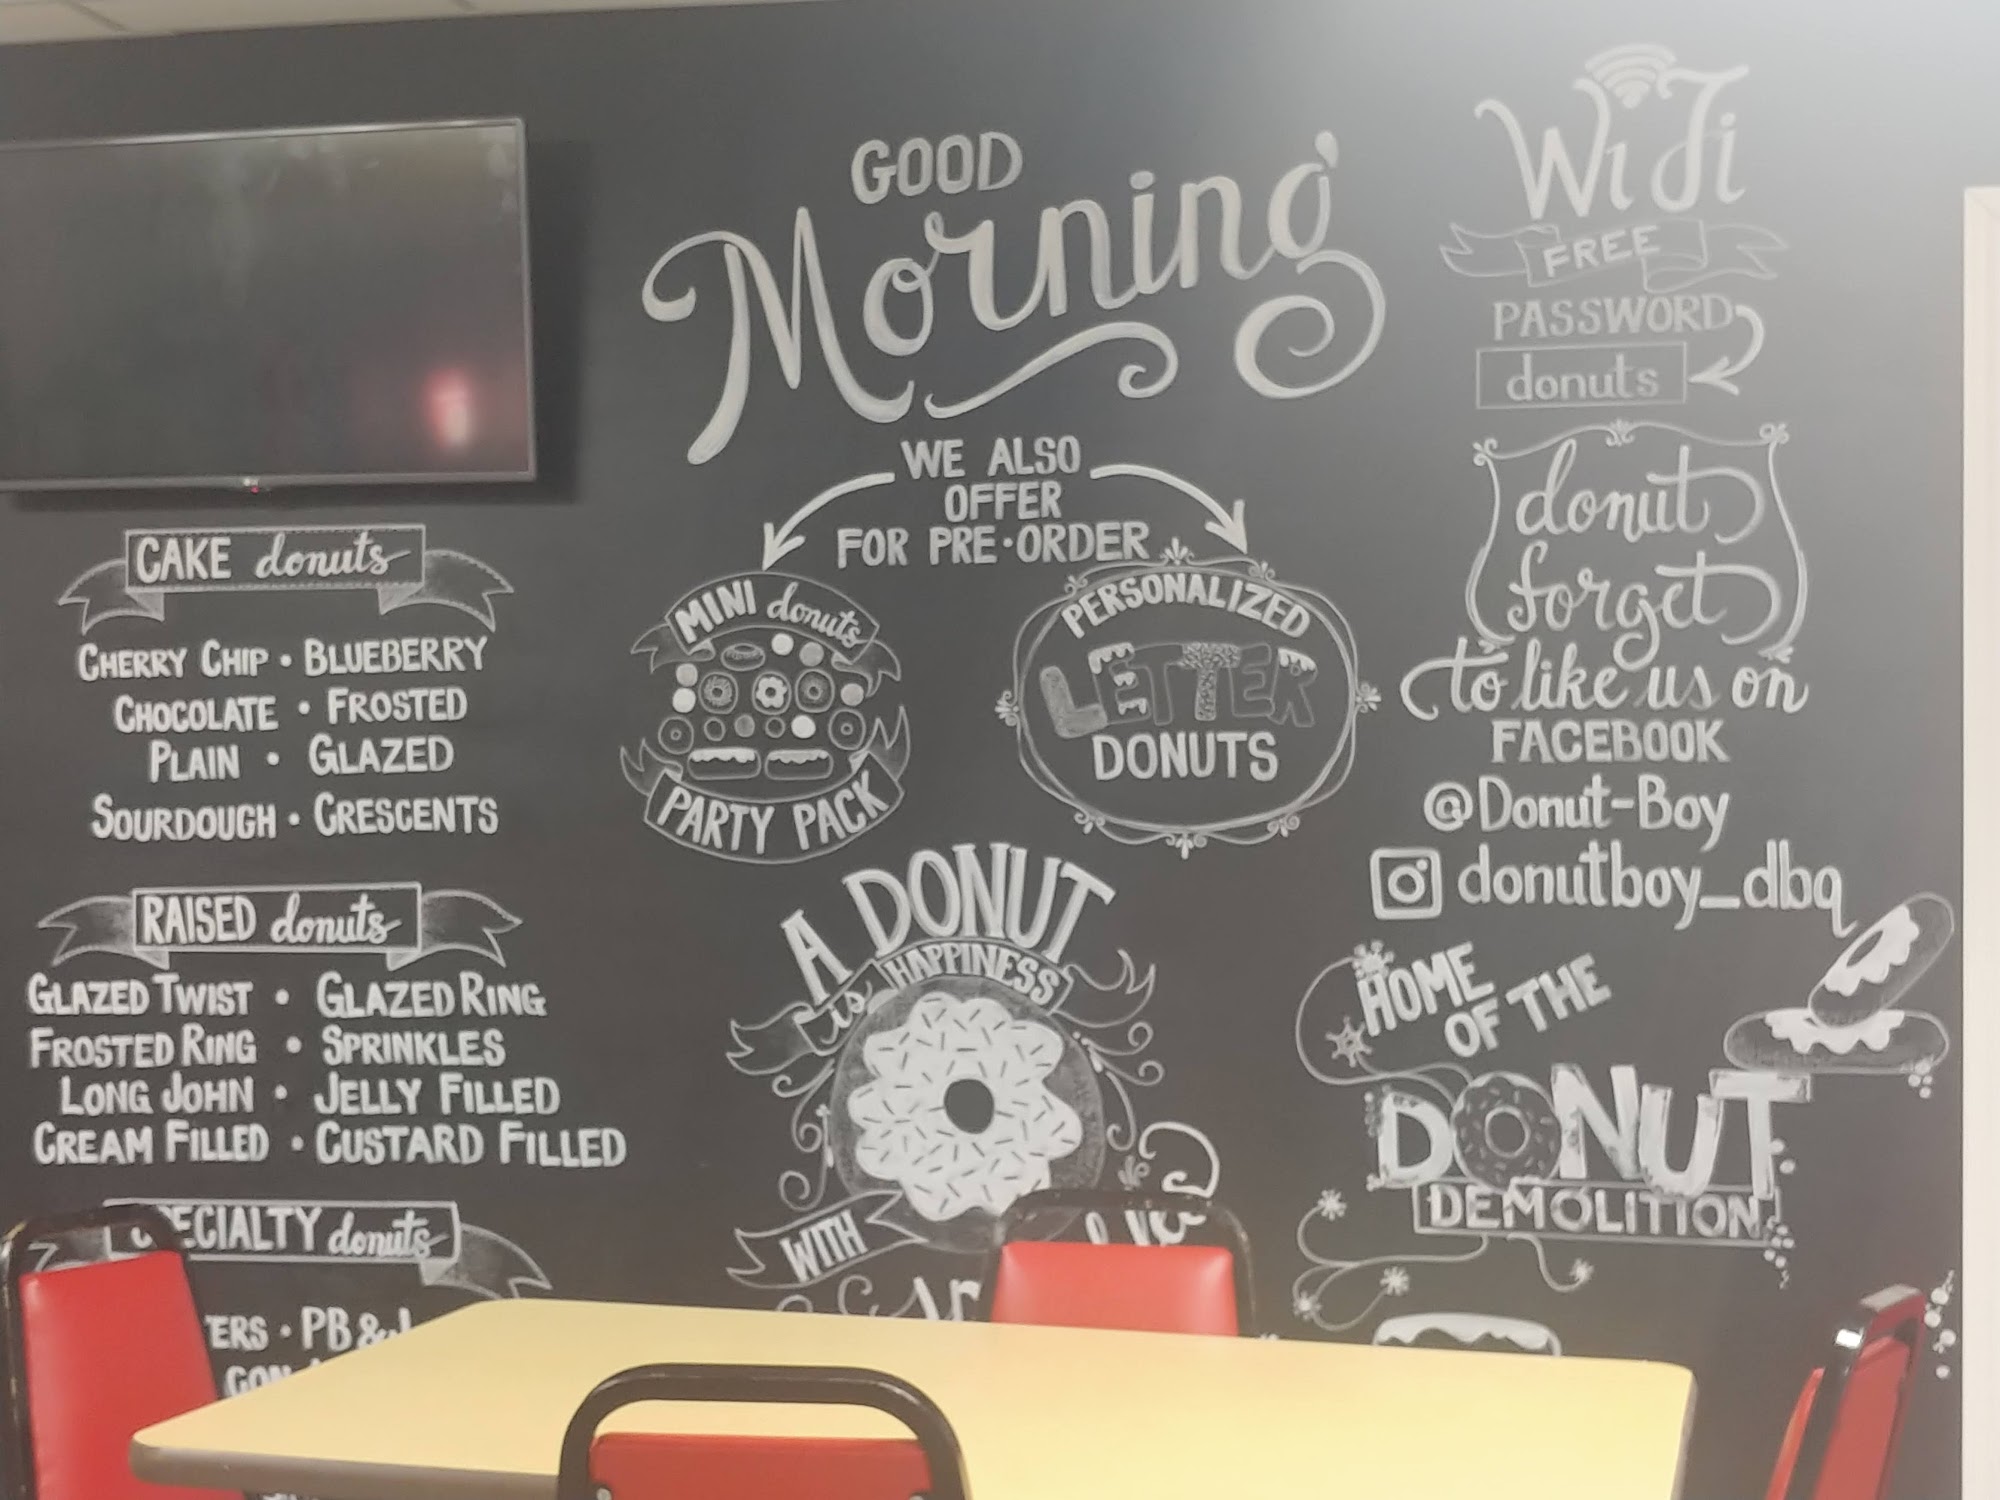 GOOD
Morning
WE ALSO
OFFER
FOR PRE·ORDER
MINI donuts
PARTY PACK
PERSONALIZED
LETTER
DONUTS
A DONUT
is HAPPINESS
WITH
WiFi
FREE
PASSWORD
donuts
donut
forget
to like us on
FACEBOOK
@Donut-Boy
donutboy_dbq
HOME
OF THE
DONUT
DEMOLITION
CAKE donuts
CHERRY CHIP • BLUEBERRY
CHOCOLATE • FROSTED
PLAIN • GLAZED
SOURDOUGH • CRESCENTS
RAISED donuts
GLAZED TWIST • GLAZED RING
FROSTED RING • SPRINKLES
LONG JOHN • JELLY FILLED
CREAM FILLED • CUSTARD FILLED
SPECIALTY donuts
PB &